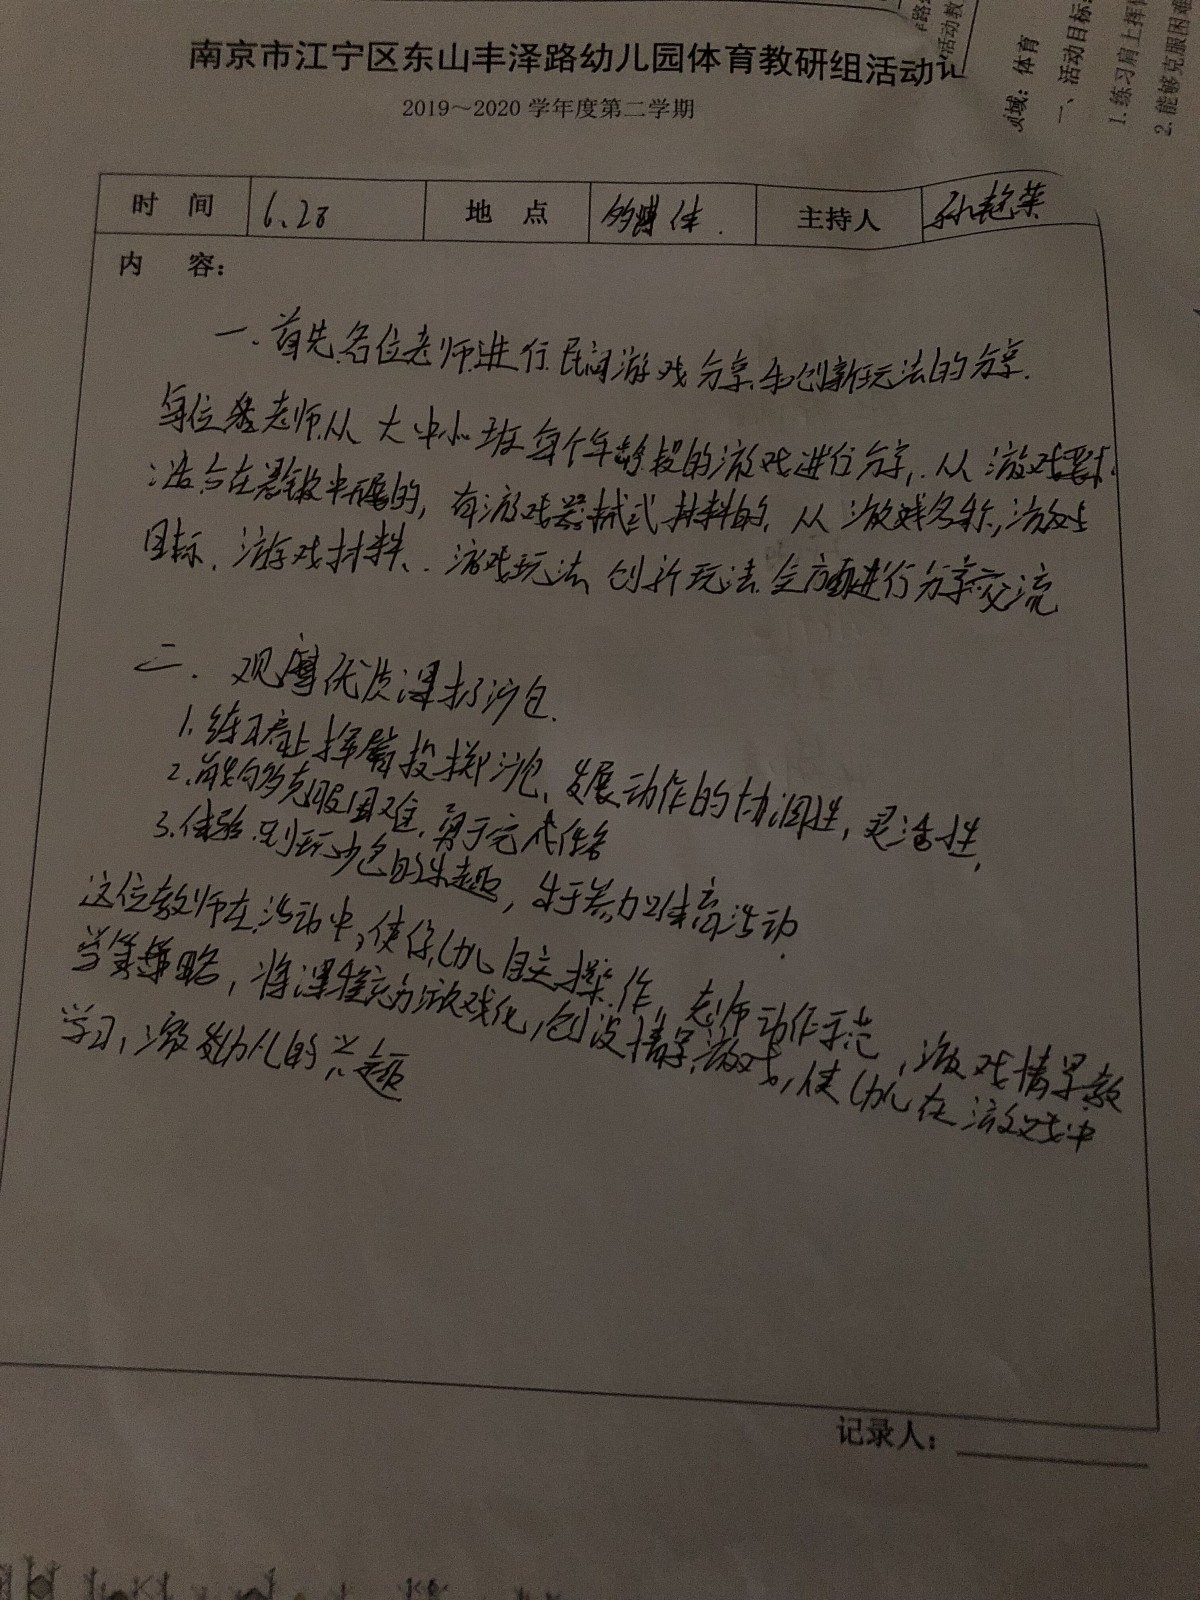 南京市江宁区东山丰泽路幼儿园体育教研组活动记
2019～2020 学年度第二学期
时 间 6.28 地 点 多媒体. 主持人 孙艳荣
内 容：
一.首先各位老师进行民间游戏分享和创新玩法的分享.
每位老师从大中小班每个年龄段的游戏进行分享,从游戏
的,有游戏器械式材料的,从游戏名称,游戏
目标、游戏材料、游戏玩法、创新玩法全方面进行分享交流
二.观摩优质课打沙包.
1.练习肩上挥臂投掷沙包、发展动作的协调性,灵活性,
2.能够克服困难.勇于完成任务
3.体验到玩沙包的乐趣,乐于参加体育活动.
这位教师在活动中,使得幼儿自主操作,老师动作示范,游戏情景教
学等策略,将课程充分游戏化,创设情景游戏,使幼儿在游戏中
学习,激发幼儿的兴趣
记录人：
域：体育
一、活动目标:
1.练习肩上挥
2.能够克服困难
活动教